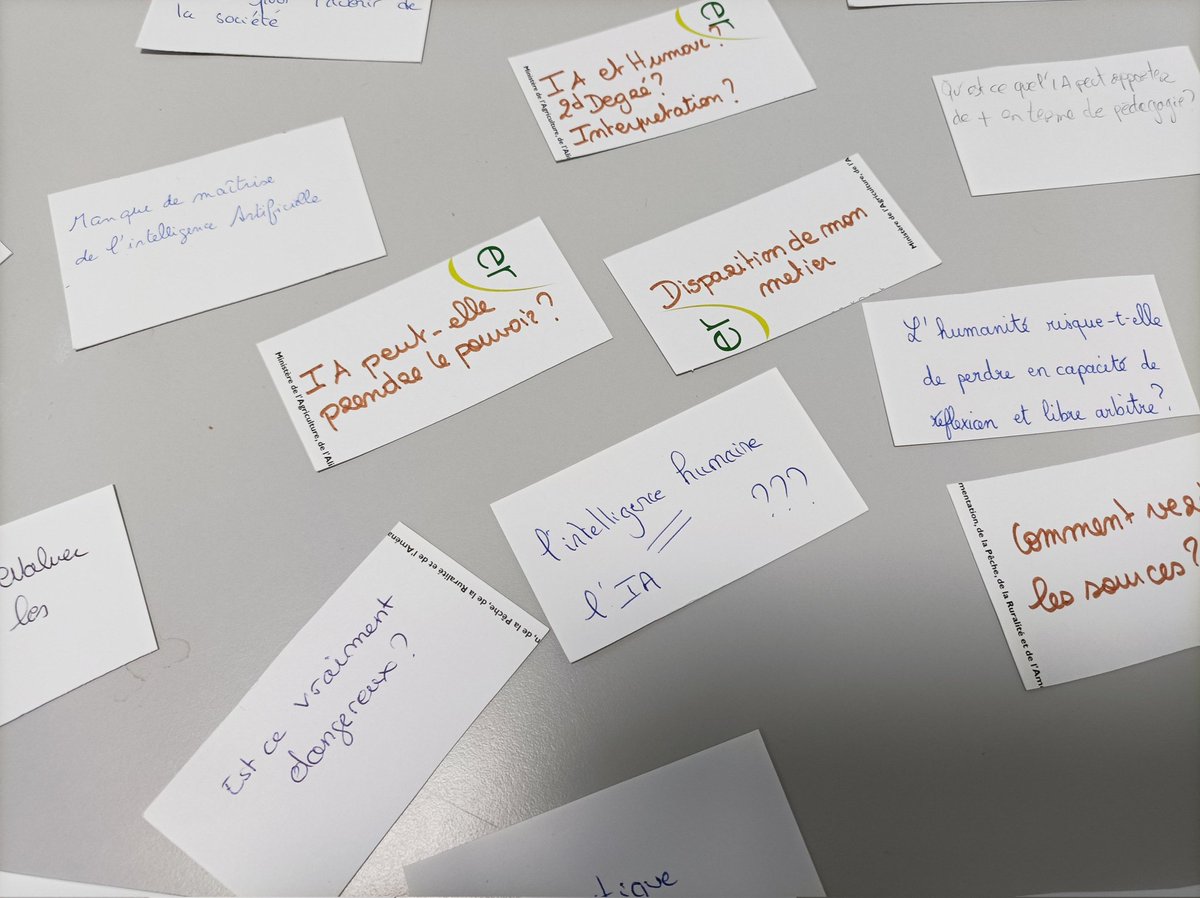 l'avenir de
la société
er
IA et Humour ?
2d Degré ?
Interpretation ?
Ministère de l'Agriculture, de l'Ali
Qu'est ce que l'IA peut apporter
de + en terme de pédagogie ?
Manque de maîtrise
de l'intelligence Artificielle
er
IA peut-elle
prendre le pouvoir ?
Ministère de l'Agriculture, de l'Ali
Ministère de l'Agriculture, de l'A
Disparition de mon
metier
er
L'humanité risque-t-elle
de perdre en capacité de
réflexion et libre arbitre ?
l'intelligence humaine
= ???
l'IA
mentation, de la Pêche, de la Ruralité et de l'Amé
Comment
les sources ?
evaluer
les
n, de la Pêche, de la Ruralité et de l'Aména
Est ce vraiment
dangereux ?
tique